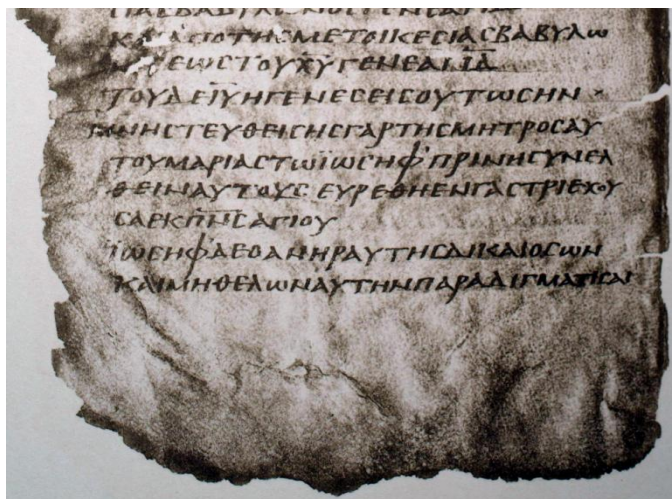 ΚΑΙΑΠΟΤΗΣΜΕΤΟΙΚΕΣΙΑΣΒΑΒΥΛΩ
ΝΟΣΕΩΣΤΟΥΧΥΓΕΝΕΑΙΙΔ
ΤΟΥΔΕΙΥΗΓΕΝΕΣΕΙΣΟΥΤΩΣΗΝ
ΜΝΗΣΤΕΥΘΕΙΣΗΣΓΑΡΤΗΣΜΗΤΡΟΣΑΥ
ΤΟΥΜΑΡΙΑΣΤΩΪΩΣΗΦ'ΠΡΙΝΗΣΥΝΕΛ
ΘΕΙΝΑΥΤΟΥΣΕΥΡΕΘΗΕΝΓΑΣΤΡΙΕΧΟΥ
ΣΑΕΚΠΝΣΑΓΙΟΥ
ΪΩΣΗΦΔΕΟΑΝΗΡΑΥΤΗΣΔΙΚΑΙΟΣΩΝ
ΚΑΙΜΗΘΕΛΩΝΑΥΤΗΝΠΑΡΑΔΙΓΜΑΤΙΣΑΙ